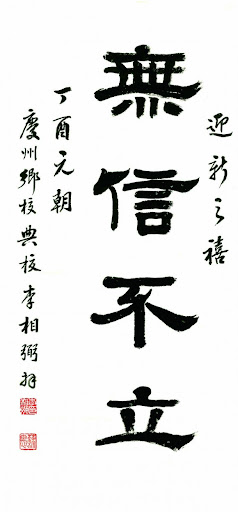 迎新之禧
無信不立
丁酉元朝
慶州鄉校典校李相弼拜